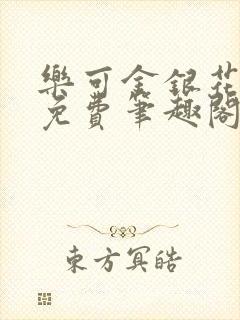 樂可金銀花
免費筆趣閣
東方冥皓